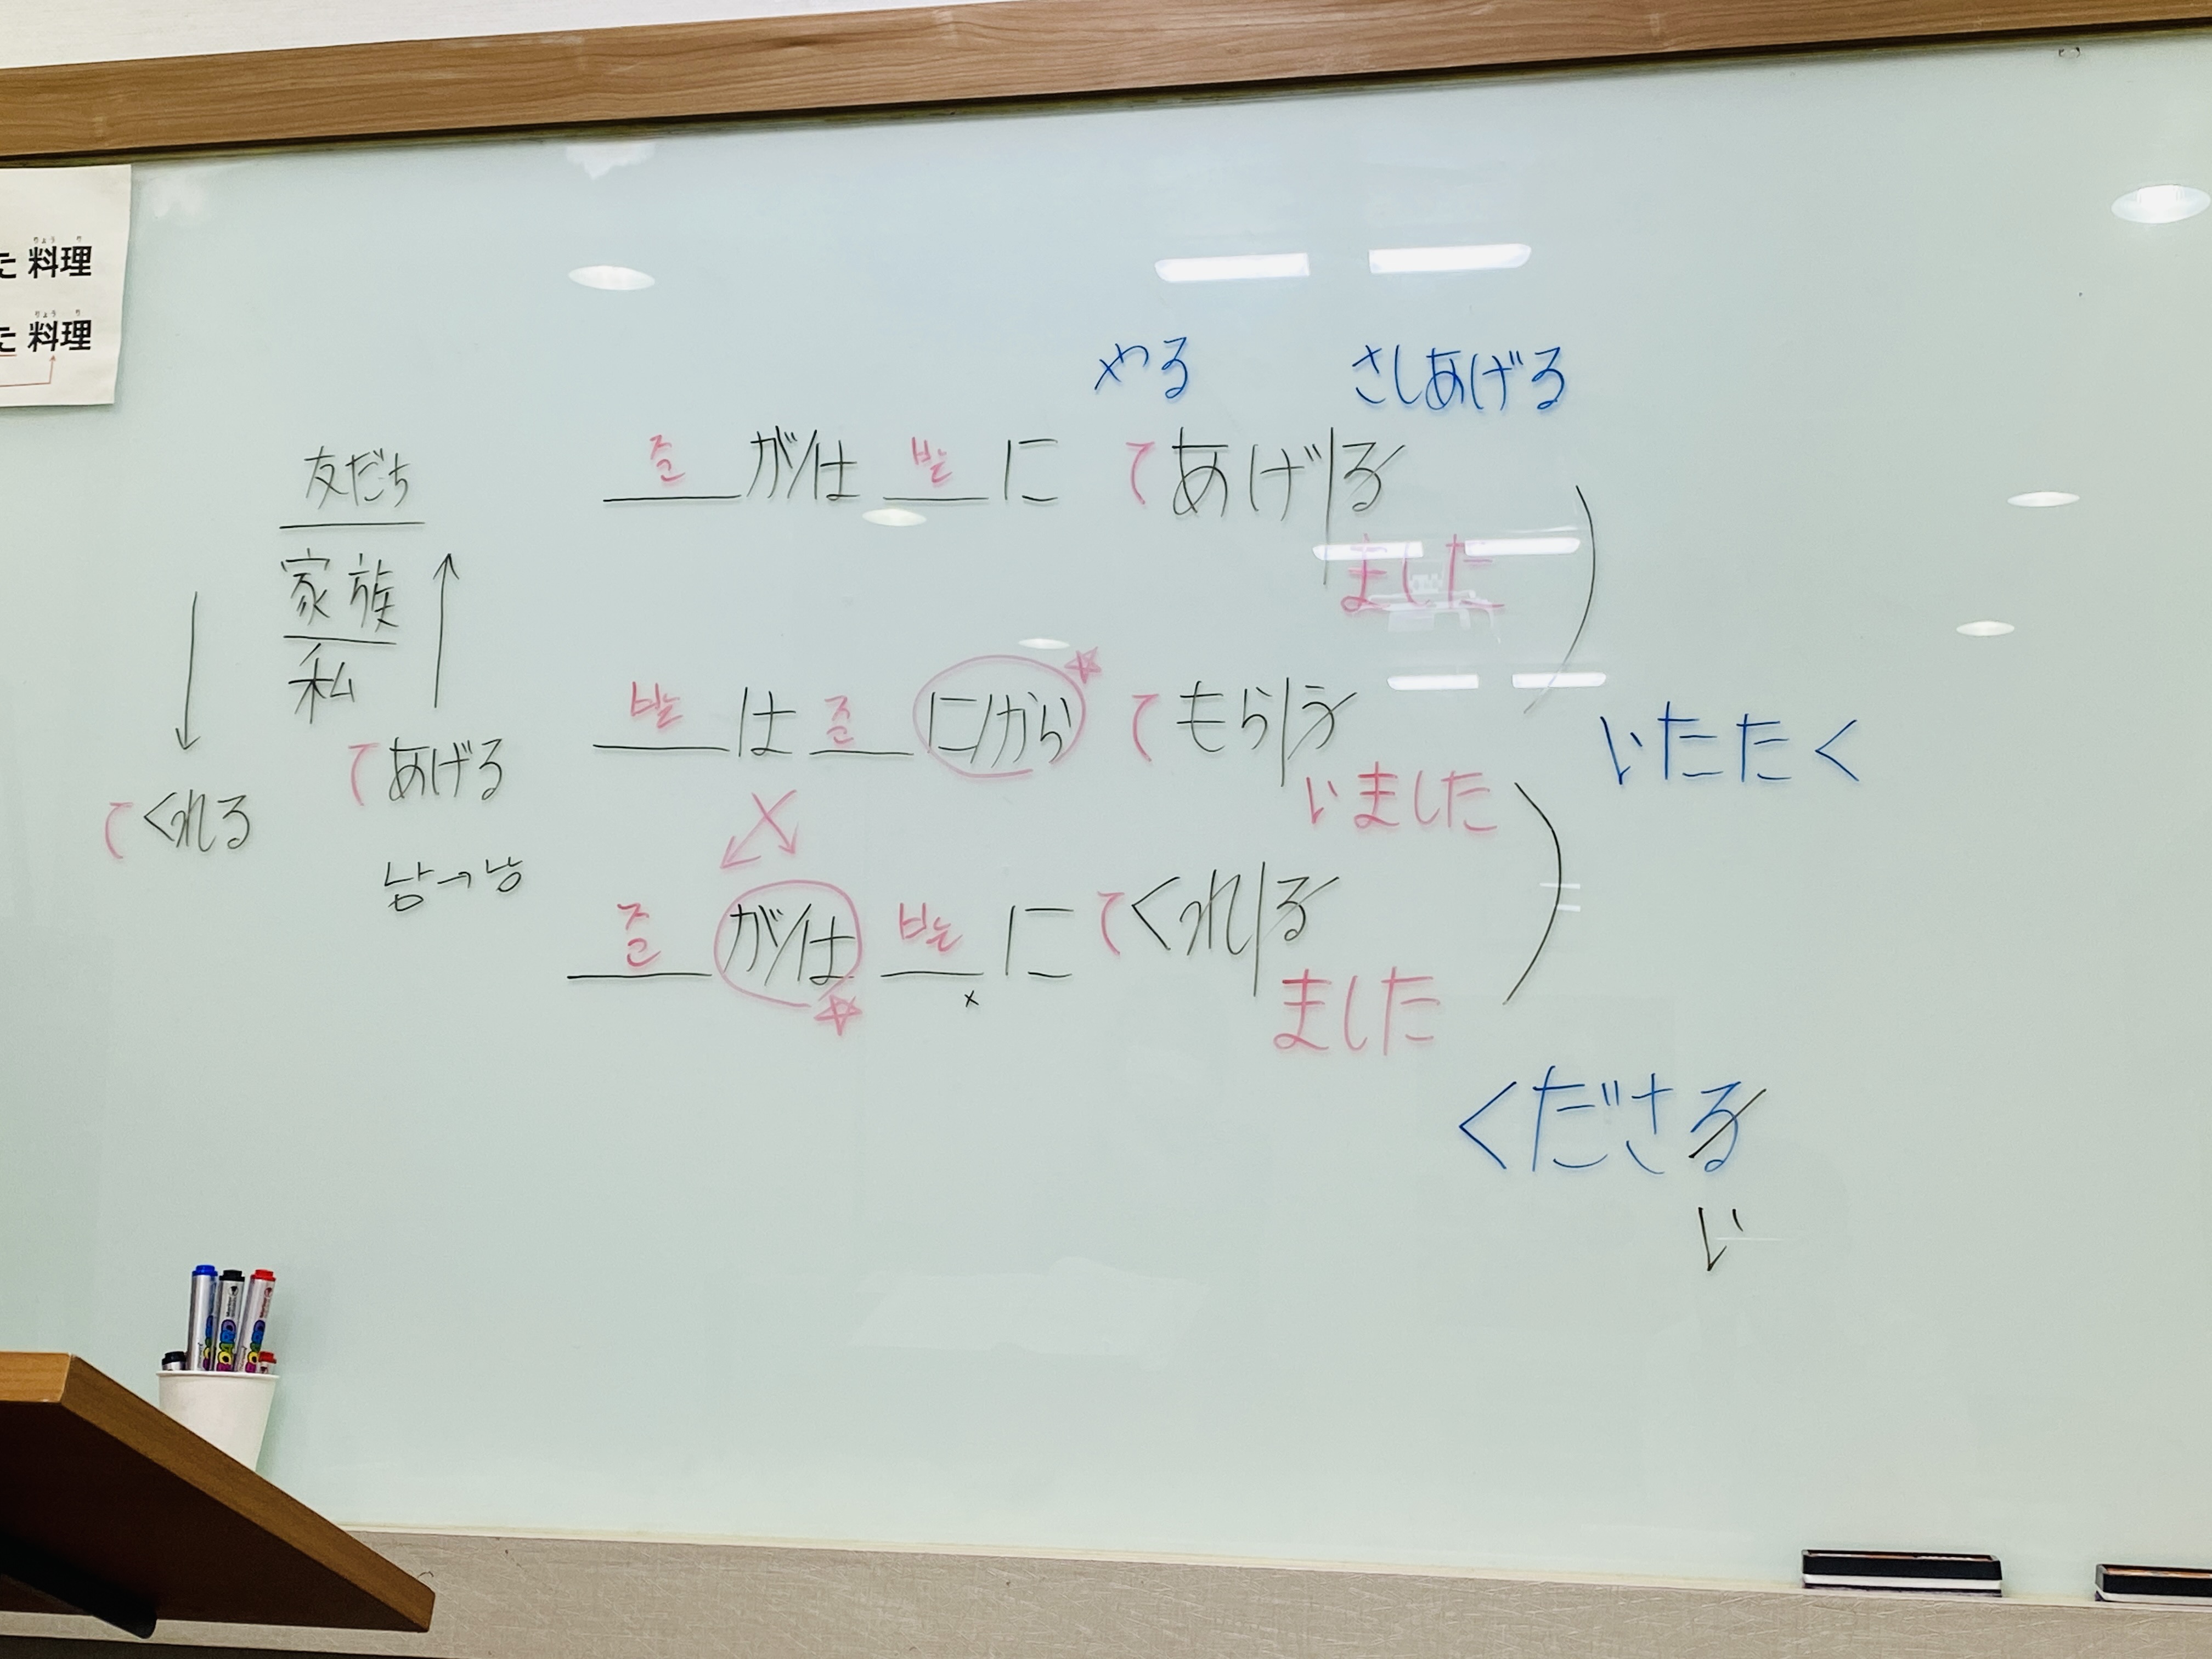 た 料理
りょう り
た 料理
りょう り
やる さしあげる
준 が/は 받는 に てあげる
ました
友だち
家族
私
てあげる
てくれる
남→남
받는 は 준 に/から てもらう
いました
いたたく
준 が/は 받는 に てくれる
ました
くださる
い